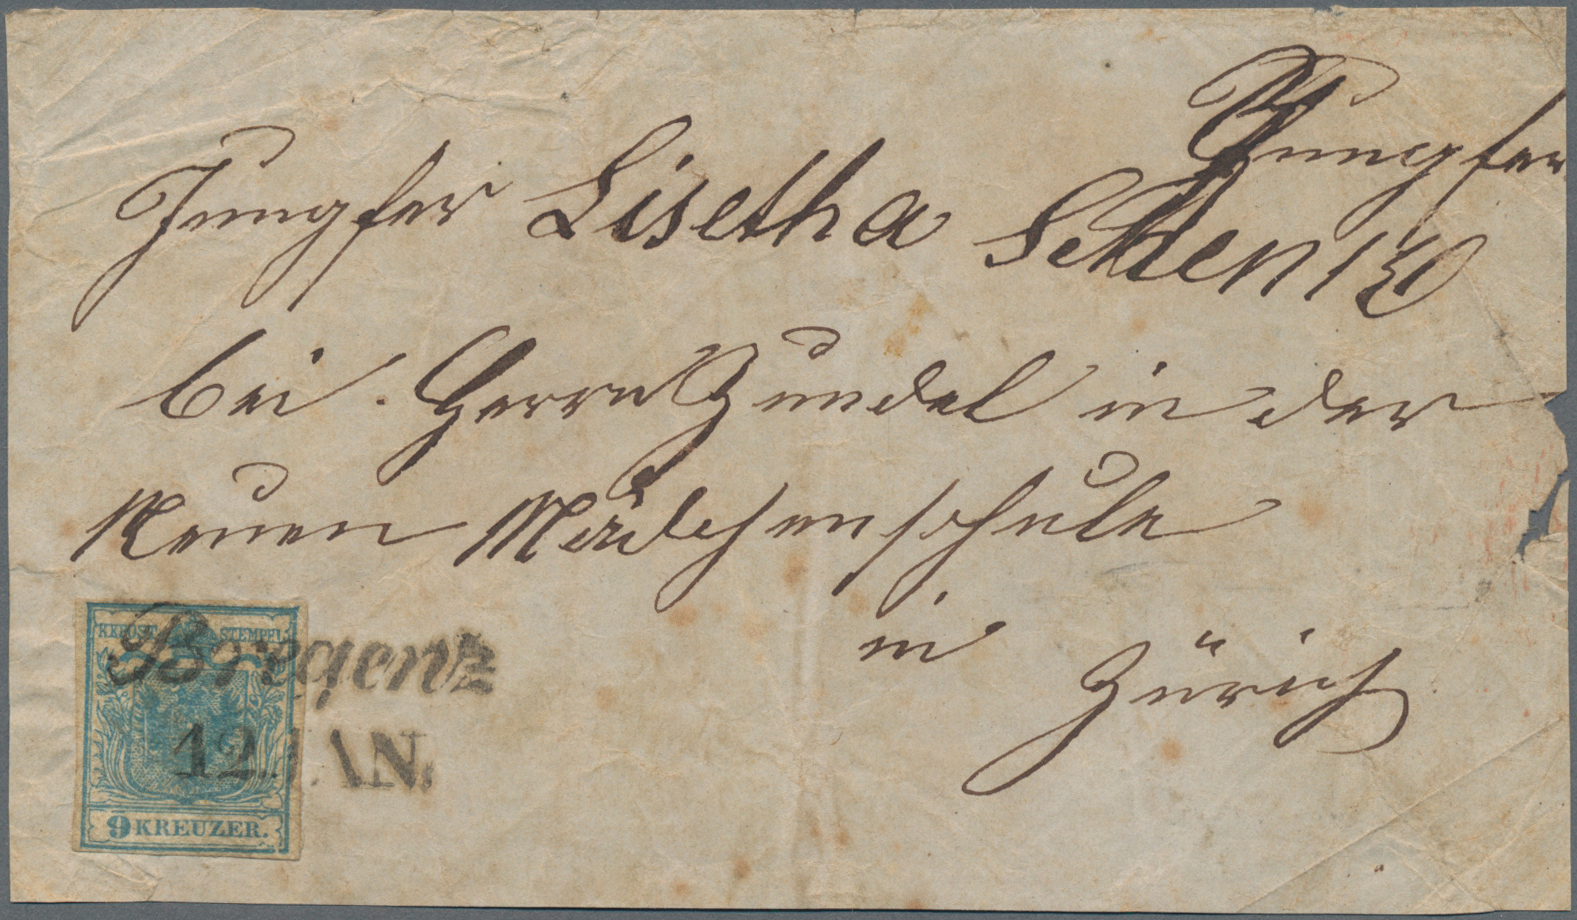 Jungfer
Jungfer Lisetha Schenk
bei Herrn Zundel in der
Neuen Mädchenschule
in
Zürich
KKPOST STEMPEL
Bregenz
12. JAN.
9 KREUZER.